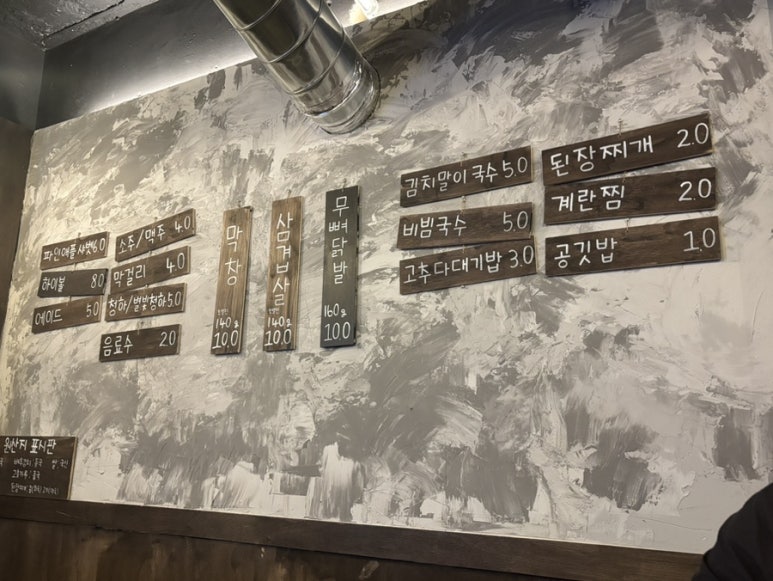 파인애플샤벳 6.0
하이볼 8.0
에이드 5.0
소주/맥주 4.0
막걸리 4.0
청하/별빛청하 5.0
음료수 2.0
막창
140g
10.0
삼겹살
140g
10.0
무뼈닭발
160g
10.0
김치말이국수 5.0
비빔국수 5.0
고추다대기밥 3.0
된장찌개 2.0
계란찜 2.0
공깃밥 1.0
원산지 표시판